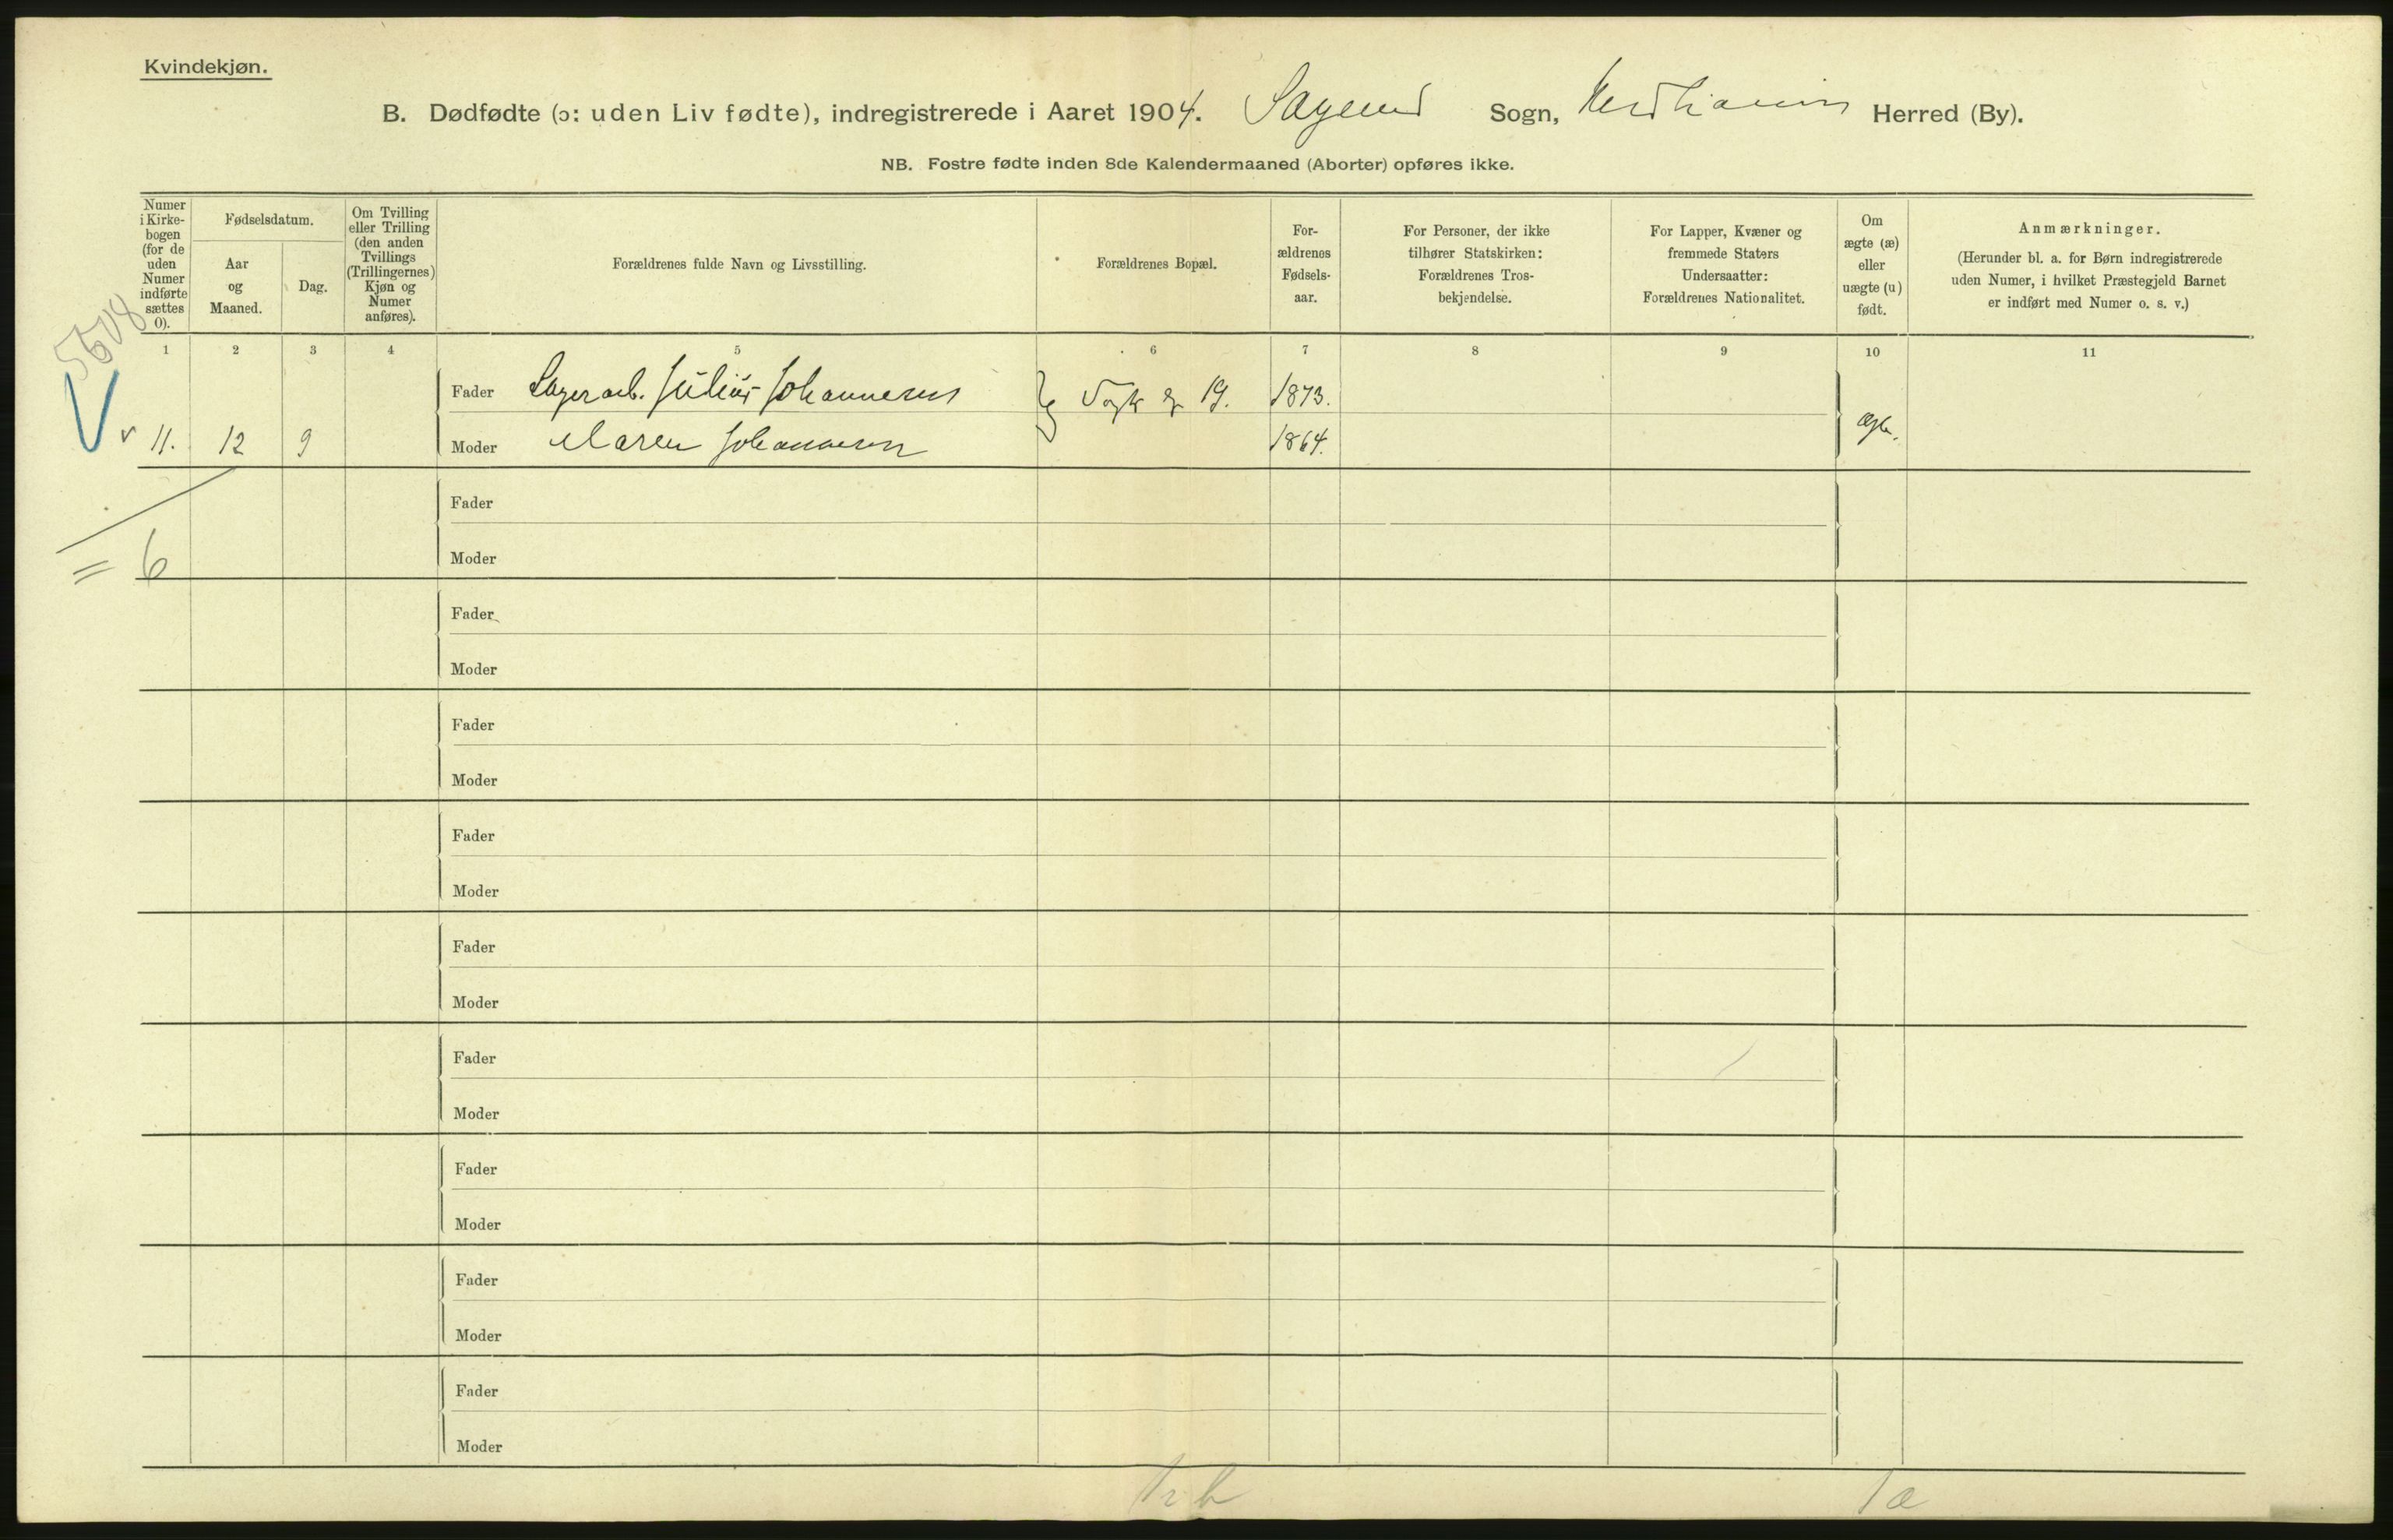 Kvindekjøn.
B. Dødfødte (ɔ: uden Liv fødte), indregistrerede i Aaret 1904. Sagene Sogn, Kristiania Herred (By).
NB. Fostre fødte inden 8de Kalendermaaned (Aborter) opføres ikke.
Numer i Kirke-bogen (for de uden Numer indførte sættes 0).
Fødselsdatum.
Aar og Maaned.
Dag.
Om Tvilling eller Trilling (den anden Tvillings (Trillingernes) Kjøn og Numer anføres).
Forældrenes fulde Navn og Livsstilling.
Forældrenes Bopæl.
For-ældrenes Fødsels-aar.
For Personer, der ikke tilhører Statskirken: Forældrenes Tros-bekjendelse.
For Lapper, Kvæner og fremmede Staters Undersaatter: Forældrenes Nationalitet.
Om ægte (æ) eller uægte (u) født.
Anmærkninger.
(Herunder bl. a. for Børn indregistrerede uden Numer, i hvilket Præstegjeld Barnet er indført med Numer o. s. v.)
1 2 3 4 5 6 7 8 9 10 11
Fader Lagerarb. Julius Johannesen 19. 1873.
v 11. 12 9 Moder Maren Johannesen 1864. Ægte.
Fader
= 6 Moder
Fader
Moder
Fader
Moder
Fader
Moder
Fader
Moder
Fader
Moder
Fader
Moder
Fader
Moder
Fader
Moder
1 æ